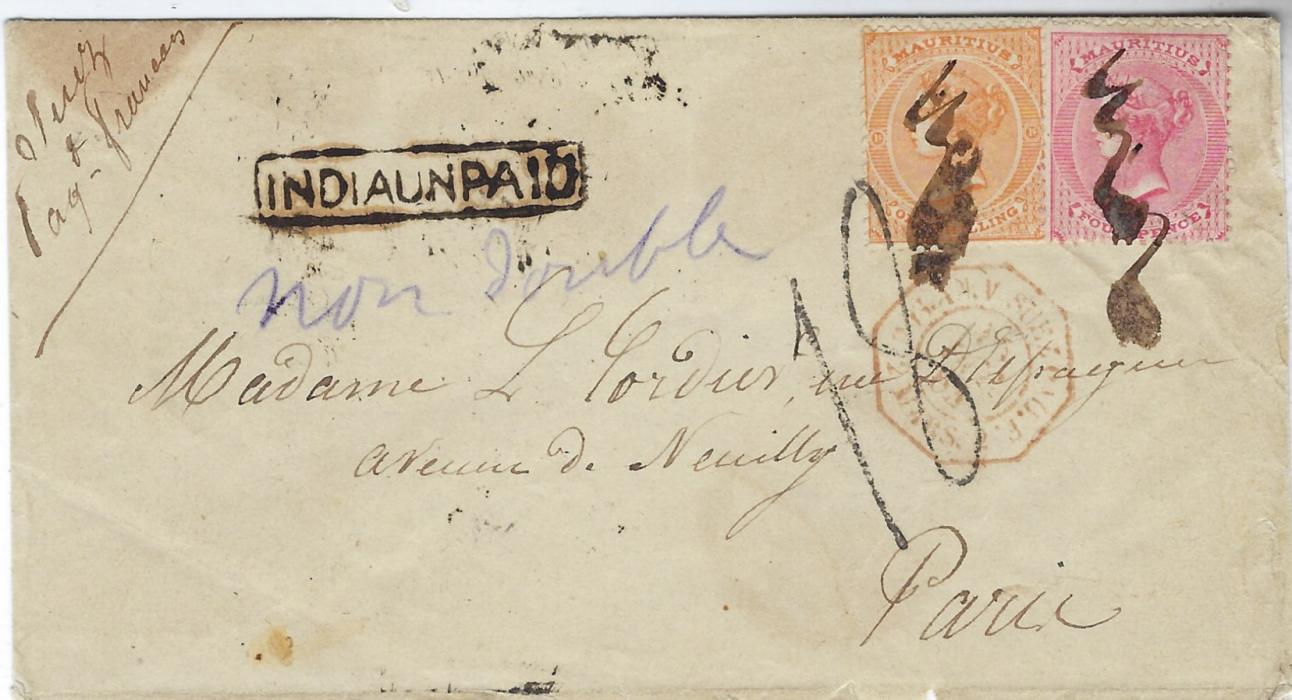 Suez
&
Paq. français
MAURITIUS
ONE SHILLING
MAURITIUS
FOUR PENCE
INDIA UNPAID
non double
18
Madame L Cordier, rue
avenue de Neuilly
Paris